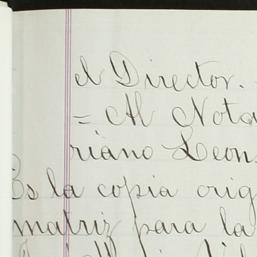 el Director.
= Al Nota
riano Leon
Es la copia orig
matriz para la